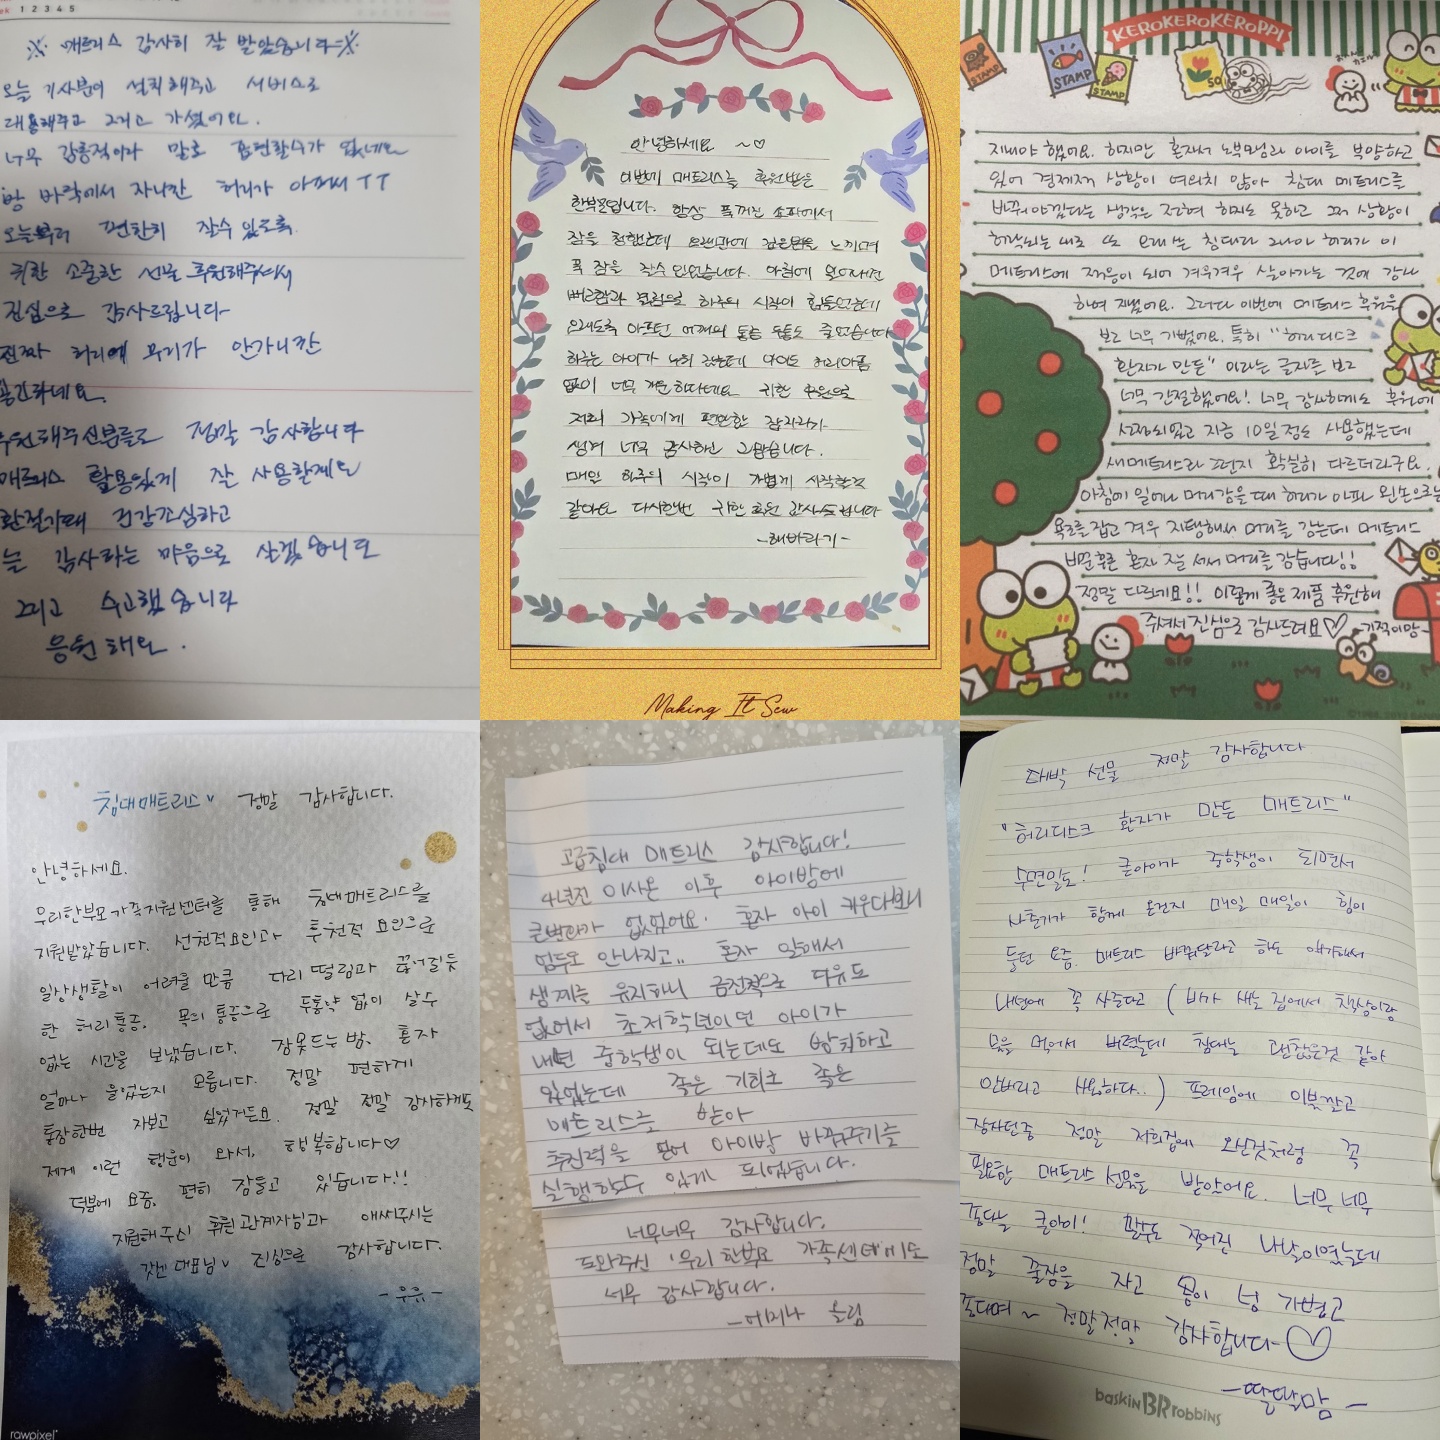 1 2 3 4 5
※ 매트리스 감사히 잘 받았습니다※
오늘 기사분이 설치해주고 서비스로
대용해주고 그리고 가셨어요.
너무 감동적이라 말로 표현할수가 없네요
방 바닥에서 자니깐 허리가 아파서 ㅜㅜ
오늘부터 편한히 잘수 있도록
귀한 소중한 선물 후원해주셔서
진심으로 감사드립니다
진짜 허리에 무리가 안가니깐
후원해주신분들로 정말 감사합니다
매트리스 활용있게 잘 사용할께요
환절기때 건강조심하고
는 감사하는 마음으로 살겠습니다
그리고 수고했습니다
응원해요.
안녕하세요 ~♡
이번에 매트리스를 후원받은
한부모입니다. 항상 푹꺼진 소파에서
잠을 청했는데 오랜만에 편안함을 느끼며
푹 잠을 잘수 있었습니다. 아침에 일어나면
뻐근함과 결림으로 하루의 시작이 힘들었는데
오래도록 아프던 어깨의 통증 두통도 줄었습니다
하루는 아이가 누워 잤는데 나이도 허리아픔
없이 너무 개운하다네요 귀한 후원으로
저희 가족에게 편안한 잠자리가
생겨 너무 감사하고 고맙습니다.
매일 하루의 시작이 가볍게 시작할것
같아요 다시한번 귀한 후원 감사드립니다
-해바라기-
Making It Sew
KEROKEROKEROPPI
STAMP
STAMP
STAMP
50
지내야 했어요. 하지만 혼자서 노부모님과 아이를 부양하고
있어 경제적 상황이 여의치 않아 침대 매트리스를
바꿔야겠다는 생각은 전혀 하지도 못하고 그저 상황이
허락되는 대로 또 오래 쓰는 침대라 그나마 허리가 이
매트리스에 적응이 되어 겨우겨우 살아가는 것에 감사
하며 지냈어요. 그러다 이번에 매트리스 후원을
보고 너무 기뻤어요. 특히 "허리디스크
환자가 만든" 이라는 글자를 보고
너무 간절했어요! 너무 감사하게도 후원에
선정되었고 지금 10일 정도 사용했는데
새매트리스라 그런지 확실히 다르더라구요.
아침에 일어나 머리감을 때 허리가 아파 왼손으로는
욕조를 잡고 겨우 지탱해서 머리를 감는데 매트리스
바꾼후론 혼자 잘 서서 머리를 감습니다!!
정말 다르네요!! 이렇게 좋은 제품 후원해
주셔서 진심으로 감사드려요♡ -기적이맘-
침대매트리스♥ 정말 감사합니다.
안녕하세요.
우리한부모가족지원센터를 통해 침대매트리스를
지원받았습니다. 선천적요인과 후천적 요인으로
일상생활이 어려울 만큼 다리 떨림과 끊어질듯
한 허리통증, 목의 통증으로 두통약 없이 살수
없는 시간을 보냈습니다. 잠못드는 밤, 혼자
얼마나 울었는지 모릅니다. 정말 편하게
통잠한번 자보고 싶었거든요. 정말 정말 감사하게도
제게 이런 행운이 와서, 행복합니다♡
덕분에 요즘, 편히 잠들고 있습니다!!
지원해주신 후원관계자님과 애써주시는
장 대표님♥ 진심으로 감사합니다.
- 우유 -
rawpixel
고급침대 매트리스 감사합니다!
4년전 이사온 이후 아이방에
큰변화가 없었어요. 혼자 아이 키우다보니
엄두도 안나지고.. 혼자 일해서
생계를 유지하니 금전적으로 여유도
없어서 초저학년이던 아이가
내년 중학생이 되는데도 방치하고
있었는데 좋은 기회로 좋은
매트리스를 받아
추진력을 얻어 아이방 바꿔주기를
실행할수 있게 되었습니다.
너무너무 감사합니다.
도와주신 '우리 한부모 가족센터'에도
너무 감사합니다.
-에미나 올림
대박 선물 정말 감사합니다
"허리디스크 환자가 만든 매트리스"
수면밀도! 큰아이가 중학생이 되면서
사춘기가 함께 온건지 매일 매일이 힘이
들던 요즘. 매트리스 바꿔달라고 하도 얘기해서
내년에 꼭 사준다고 (비가 새는 집에서 침상이랑
물을 먹어서 버렸는데 침대는 괜찮은것 같아
안버리고 사용하다..) 프레임에 이불깔고
잠자던중 정말 저희집에 오신것처럼 꼭
필요한 매트리스 선물을 받았어요. 너무 너무
좋다는 큰아이! 팔뚝도 찢어진 나날이였는데
정말 꿀잠을 자고 몸이 넘 가볍고
좋다며~ 정말정말 감사합니다~♡
-딸딸맘-
baskin BR robbins